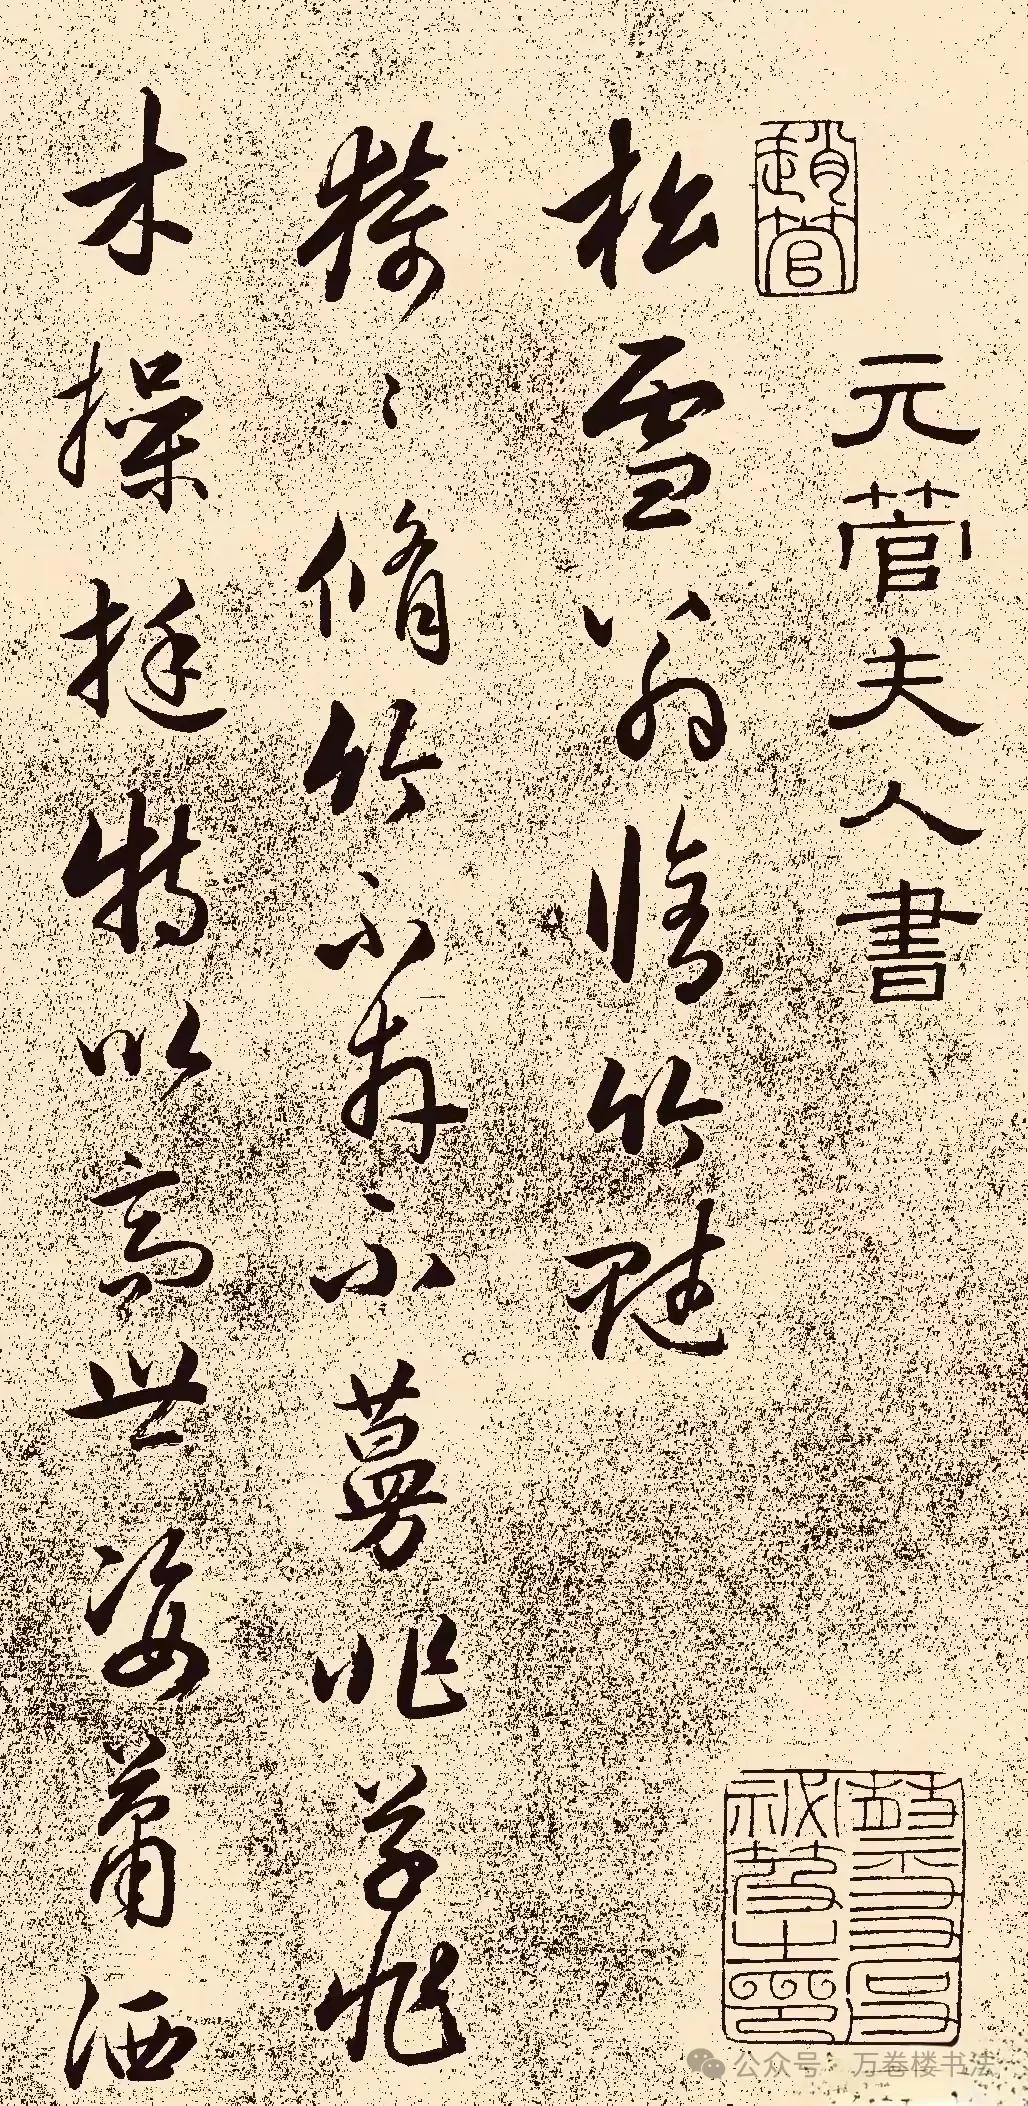 元管夫人書
趙管
松雪翁脩竹賦
猗〻脩竹不卉不蔓非草非
木操挺特以高世姿蕭洒
公众号 · 万卷楼书法